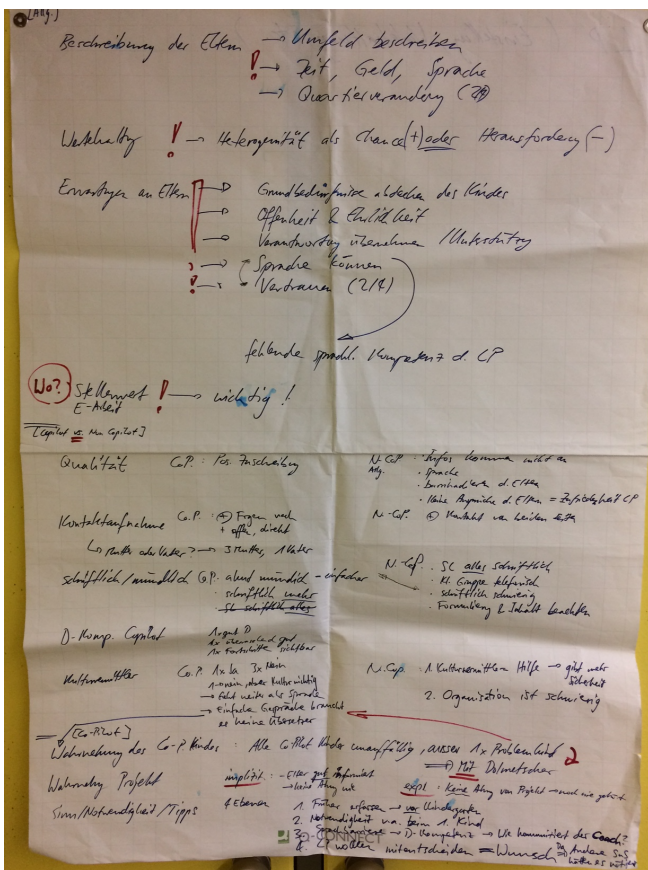 [Allg.]
Beschreibung der Eltern → Umfeld beschreiben
! → Zeit, Geld, Sprache
→ Quartierveränderung (2/4)
Werthaltung ! → Heterogenität als Chance (+) oder Herausforderung (-)
Erwartungen an Eltern → Grundbedürfnisse abdecken des Kindes
→ Offenheit & Ehrlichkeit
→ Verantwortung übernehmen / Unterstützung
! → Sprache können
! → Vertrauen (2/4)
fehlende sprachl. Kompetenz d. LP
Wo? Stellenwert ! → wichtig !
E-Arbeit
[Copilot vs. Non Copilot]
Qualität CoP. : Pos. Zuschreibung
N-CoP : Infos kommen nicht an
Allg. · Sprache
d. Eltern
· Keine Ansprüche d. Eltern = Zufriedenheit LP
Kontaktaufnahme Co.P. : + Fragen nach
+ offen, direkt
N-CoP. + Kontakt von beiden Seiten
↳ Mutter oder Vater? → 3 Mutter, 1 Vater
schriftlich/mündlich CoP. : mündlich - einfacher
· schriftlich mehr
· SL schriftlich alles
N-CoP. · SL alles schriftlich
· Kl. Gruppe telefonisch
· schriftlich schwierig
· Formulierung & Inhalt beachten
D-Komp. Copilot 1x gut D
1x überraschend gut
1x Fortschritte sichtbar
Kulturvermittler Co.P. : 1x Ja 3x Nein
→ geht weiter als Sprache
→ Einfache Gespräche braucht
es keine Übersetzer
N.Cop. 1. Kulturvermittler Hilfe → gibt mehr
Sicherheit
2. Organisation ist schwierig
[Co-Pilot]
Wahrnehmung des Co-P. Kindes : Alle CoPilot Kinder unauffällig, ausser 1x Problemkind
⇒ Mit Dolmetscher
Wahrnehmg Projekt implizit : - Eltern gut informiert
expl. : Keine Ahng von Projekt → noch nie gehört
Sinn/Notwendigkeit/Tipps 4 Ebenen 1. Früher erfassen → vor Kindergarten
2. Notwendigkeit v.a. beim 1. Kind
3. Sprachbarriere → D-Kompetenz → Wie kommuniziert der Coach?
4. LP wollen mitentscheiden = Wunsch ⇒ Andere SuS
hätten es nötiger
Q-CONNECT